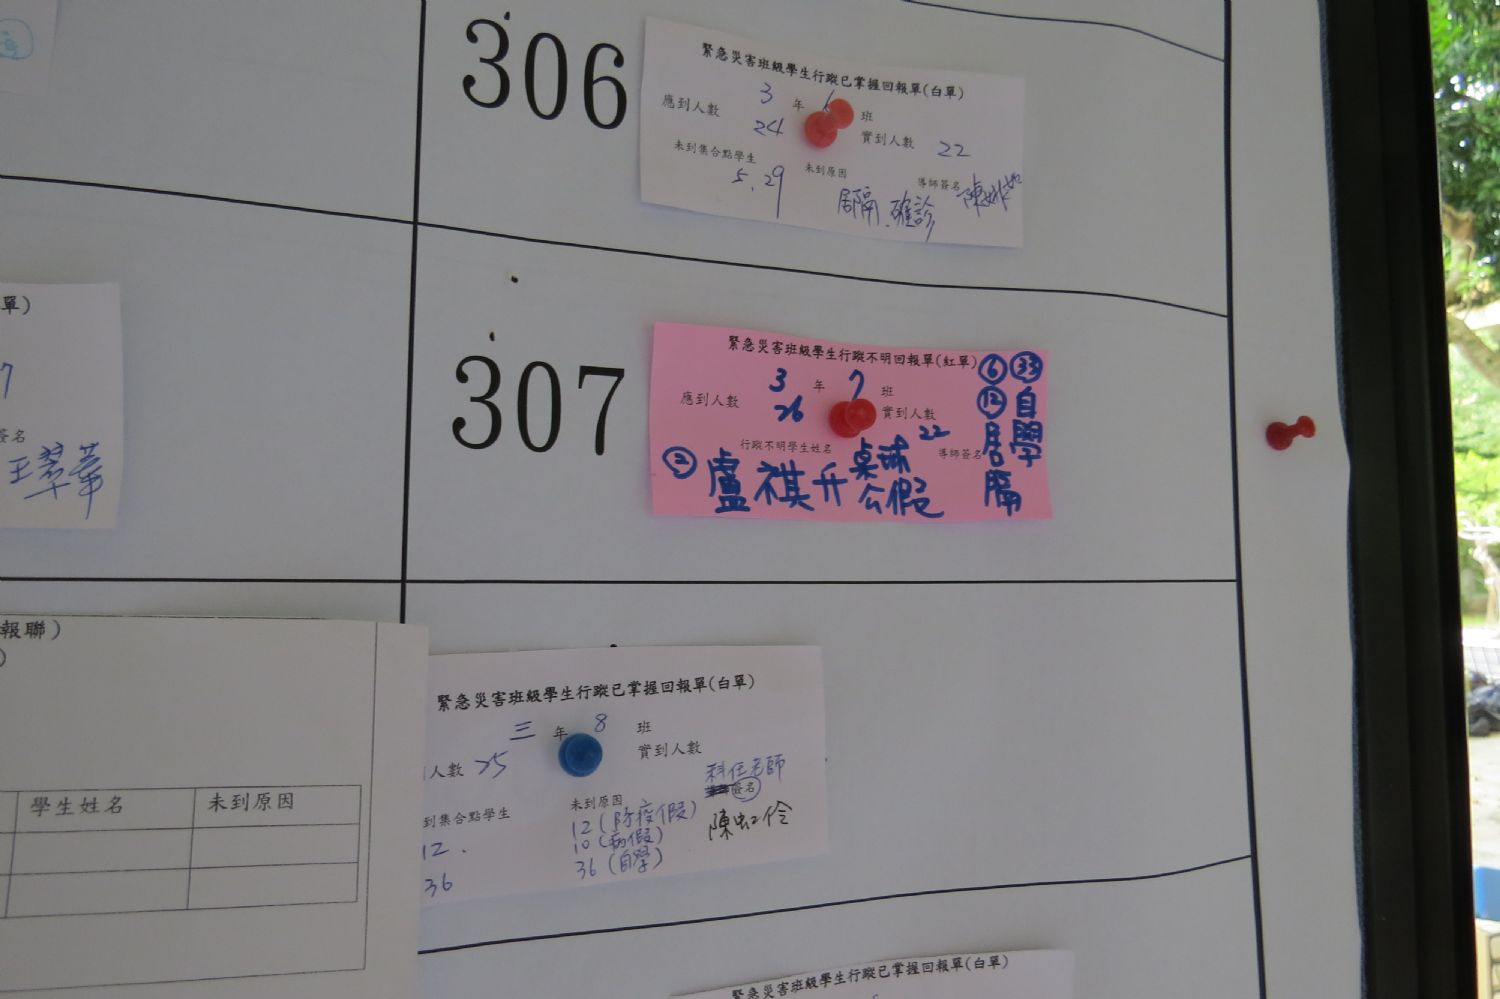 306
緊急災害班級學生行蹤已掌握回報單(白單)
3 年 班
應到人數 24 實到人數 22
未到集合點學生 未到原因 導師簽名
5、29 居隔、確診
單)
7
簽名
王翠華
307
緊急災害班級學生行蹤不明回報單(紅單)
3 年 7 班
應到人數 26 實到人數 22
行蹤不明學生姓名 導師簽名
② 盧祺升 桌球公假
⑥ ⑫ 居隔
㉝ 自學
報聯)
)
學生姓名 未到原因
緊急災害班級學生行蹤已掌握回報單(白單)
三 年 8 班
人數 25 實到人數
到集合點學生 未到原因 科任老師 簽名
12. 12(防疫假) 陳虹伶
10(病假)
36 36(自學)
緊急災害班級學生行蹤已掌握回報單(白單)